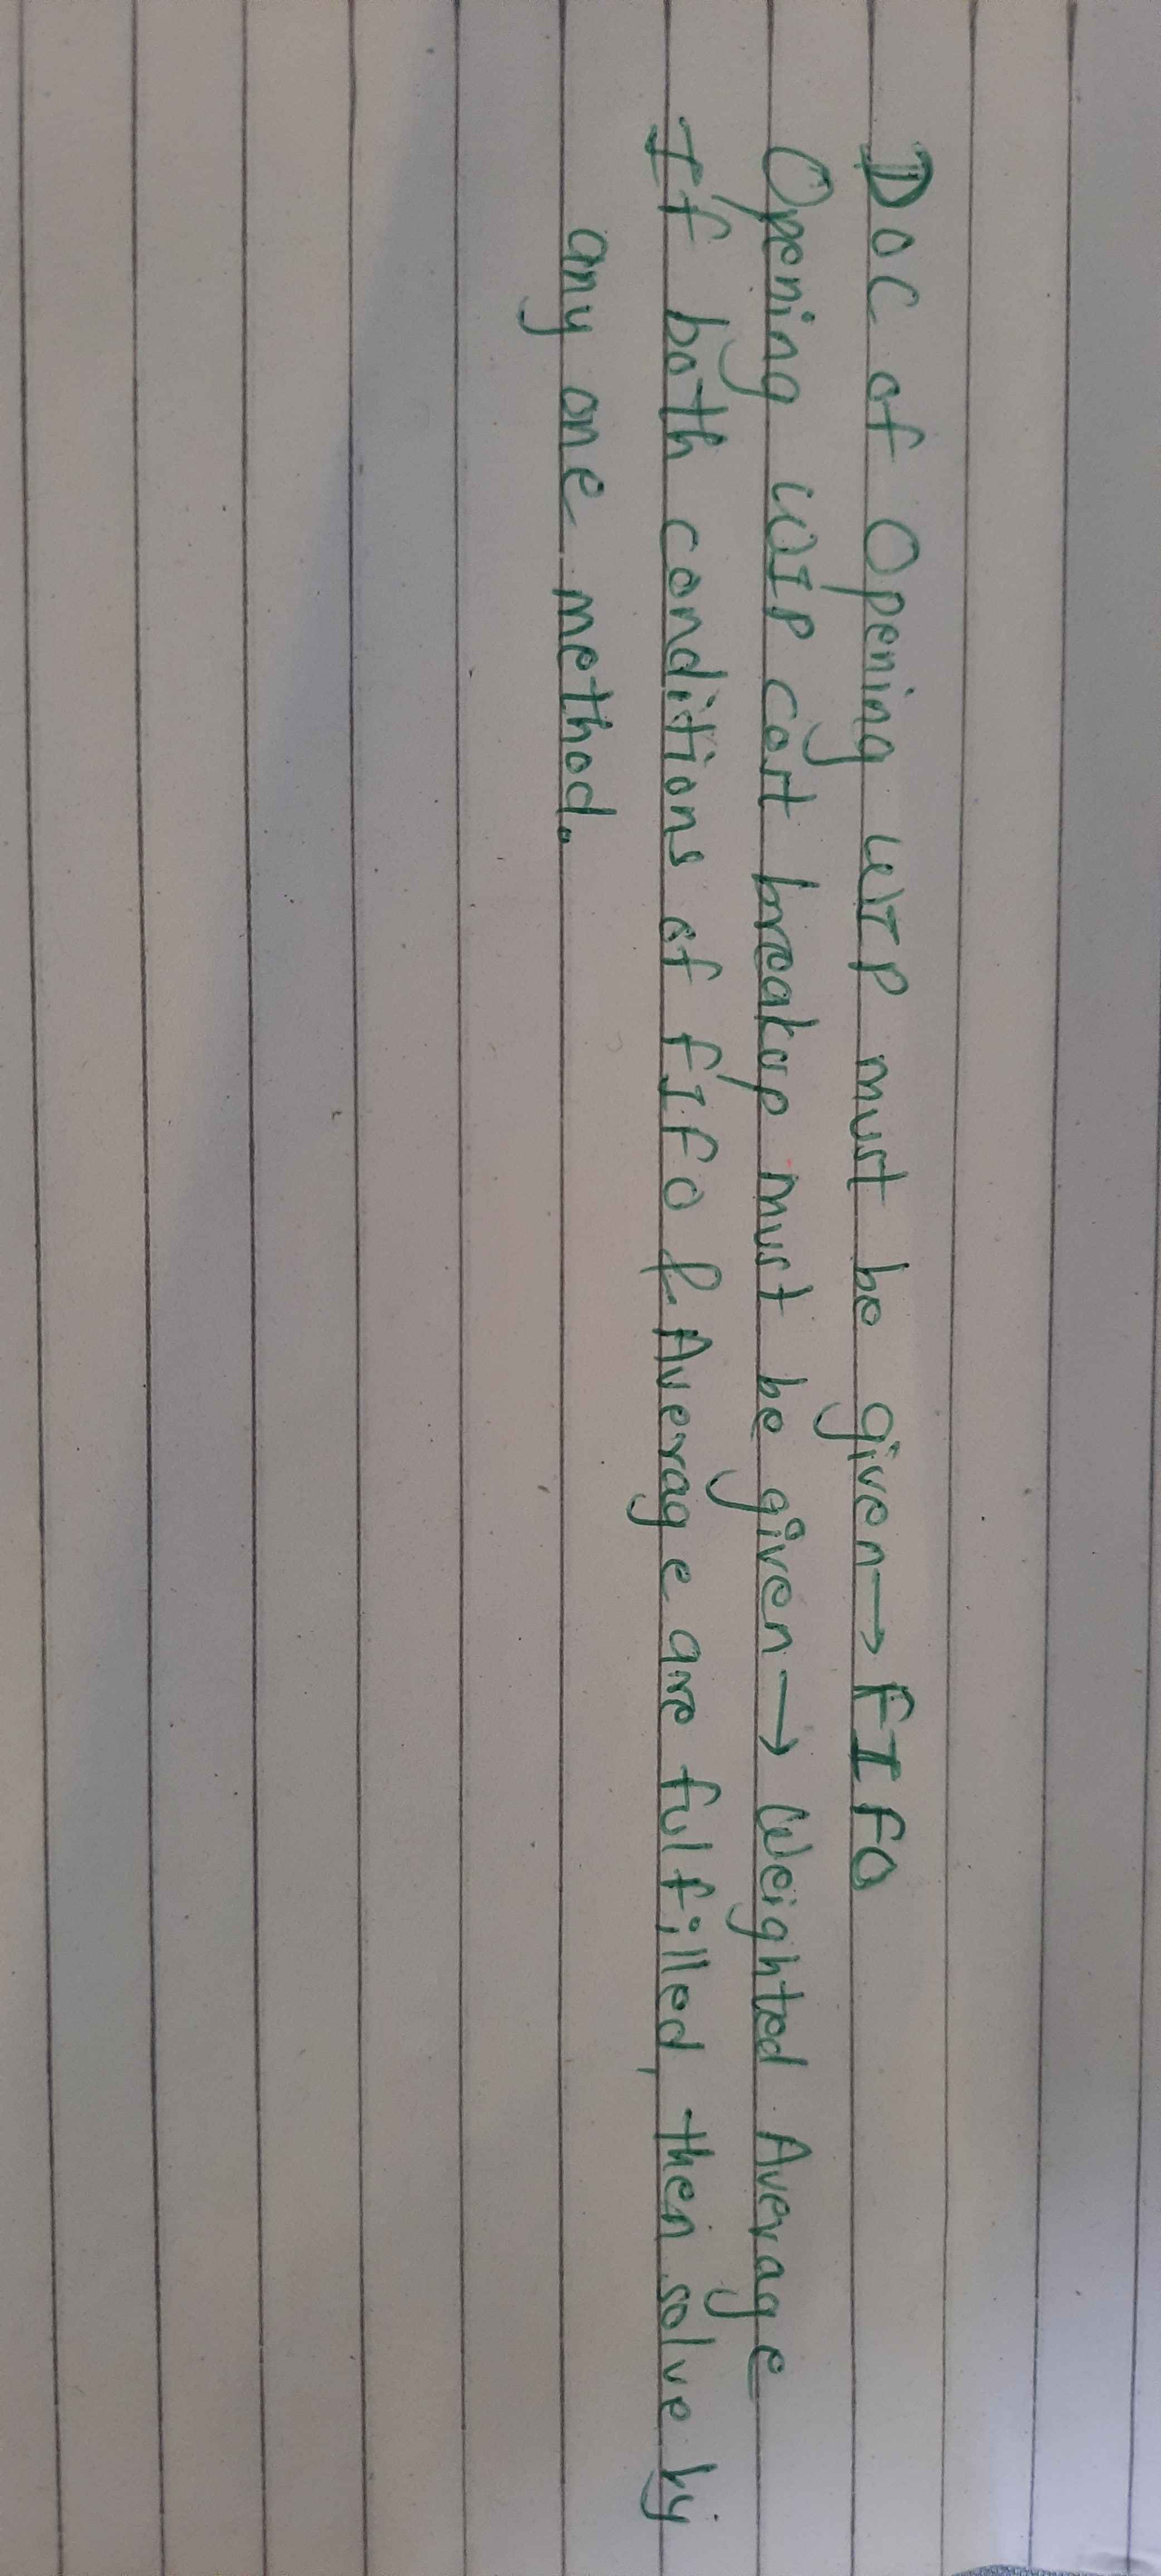 DOC of Opening WIP must be given→FIFO
Opening WIP cost breakup must be given→ Weighted Average
If both conditions of FIFO & Average are fulfilled, then solve by
any one method.